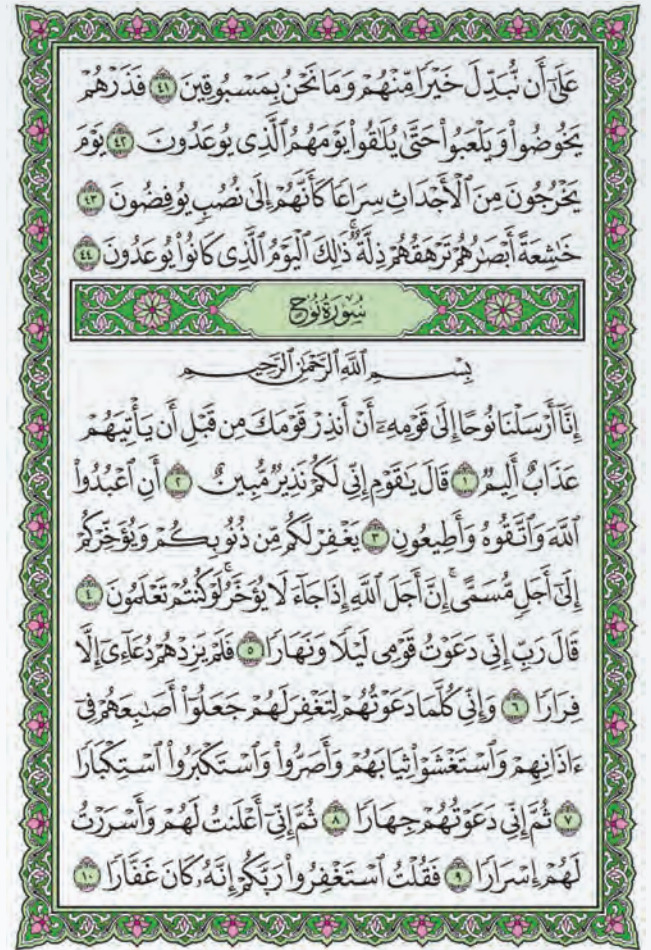 عَلَىٰٓ أَن نُّبَدِّلَ خَيْرًا مِّنْهُمْ وَمَا نَحْنُ بِمَسْبُوقِينَ ٤١ فَذَرْهُمْ
يَخُوضُوا۟ وَيَلْعَبُوا۟ حَتَّىٰ يُلَـٰقُوا۟ يَوْمَهُمُ ٱلَّذِى يُوعَدُونَ ٤٢ يَوْمَ
يَخْرُجُونَ مِنَ ٱلْأَجْدَاثِ سِرَاعًا كَأَنَّهُمْ إِلَىٰ نُصُبٍ يُوفِضُونَ ٤٣
خَـٰشِعَةً أَبْصَـٰرُهُمْ تَرْهَقُهُمْ ذِلَّةٌ ۚ ذَٰلِكَ ٱلْيَوْمُ ٱلَّذِى كَانُوا۟ يُوعَدُونَ ٤٤
سُورَةُ نُوحٍ
بِسْمِ ٱللَّهِ ٱلرَّحْمَـٰنِ ٱلرَّحِيمِ
إِنَّآ أَرْسَلْنَا نُوحًا إِلَىٰ قَوْمِهِۦٓ أَنْ أَنذِرْ قَوْمَكَ مِن قَبْلِ أَن يَأْتِيَهُمْ
عَذَابٌ أَلِيمٌ ١ قَالَ يَـٰقَوْمِ إِنِّى لَكُمْ نَذِيرٌ مُّبِينٌ ٢ أَنِ ٱعْبُدُوا۟
ٱللَّهَ وَٱتَّقُوهُ وَأَطِيعُونِ ٣ يَغْفِرْ لَكُم مِّن ذُنُوبِكُمْ وَيُؤَخِّرْكُمْ
إِلَىٰٓ أَجَلٍ مُّسَمًّى ۚ إِنَّ أَجَلَ ٱللَّهِ إِذَا جَآءَ لَا يُؤَخَّرُ ۖ لَوْ كُنتُمْ تَعْلَمُونَ ٤
قَالَ رَبِّ إِنِّى دَعَوْتُ قَوْمِى لَيْلًا وَنَهَارًا ٥ فَلَمْ يَزِدْهُمْ دُعَآءِىٓ إِلَّا
فِرَارًا ٦ وَإِنِّى كُلَّمَا دَعَوْتُهُمْ لِتَغْفِرَ لَهُمْ جَعَلُوٓا۟ أَصَـٰبِعَهُمْ فِىٓ
ءَاذَانِهِمْ وَٱسْتَغْشَوْا۟ ثِيَابَهُمْ وَأَصَرُّوا۟ وَٱسْتَكْبَرُوا۟ ٱسْتِكْبَارًا
٧ ثُمَّ إِنِّى دَعَوْتُهُمْ جِهَارًا ٨ ثُمَّ إِنِّىٓ أَعْلَنتُ لَهُمْ وَأَسْرَرْتُ
لَهُمْ إِسْرَارًا ٩ فَقُلْتُ ٱسْتَغْفِرُوا۟ رَبَّكُمْ إِنَّهُۥ كَانَ غَفَّارًا ١٠